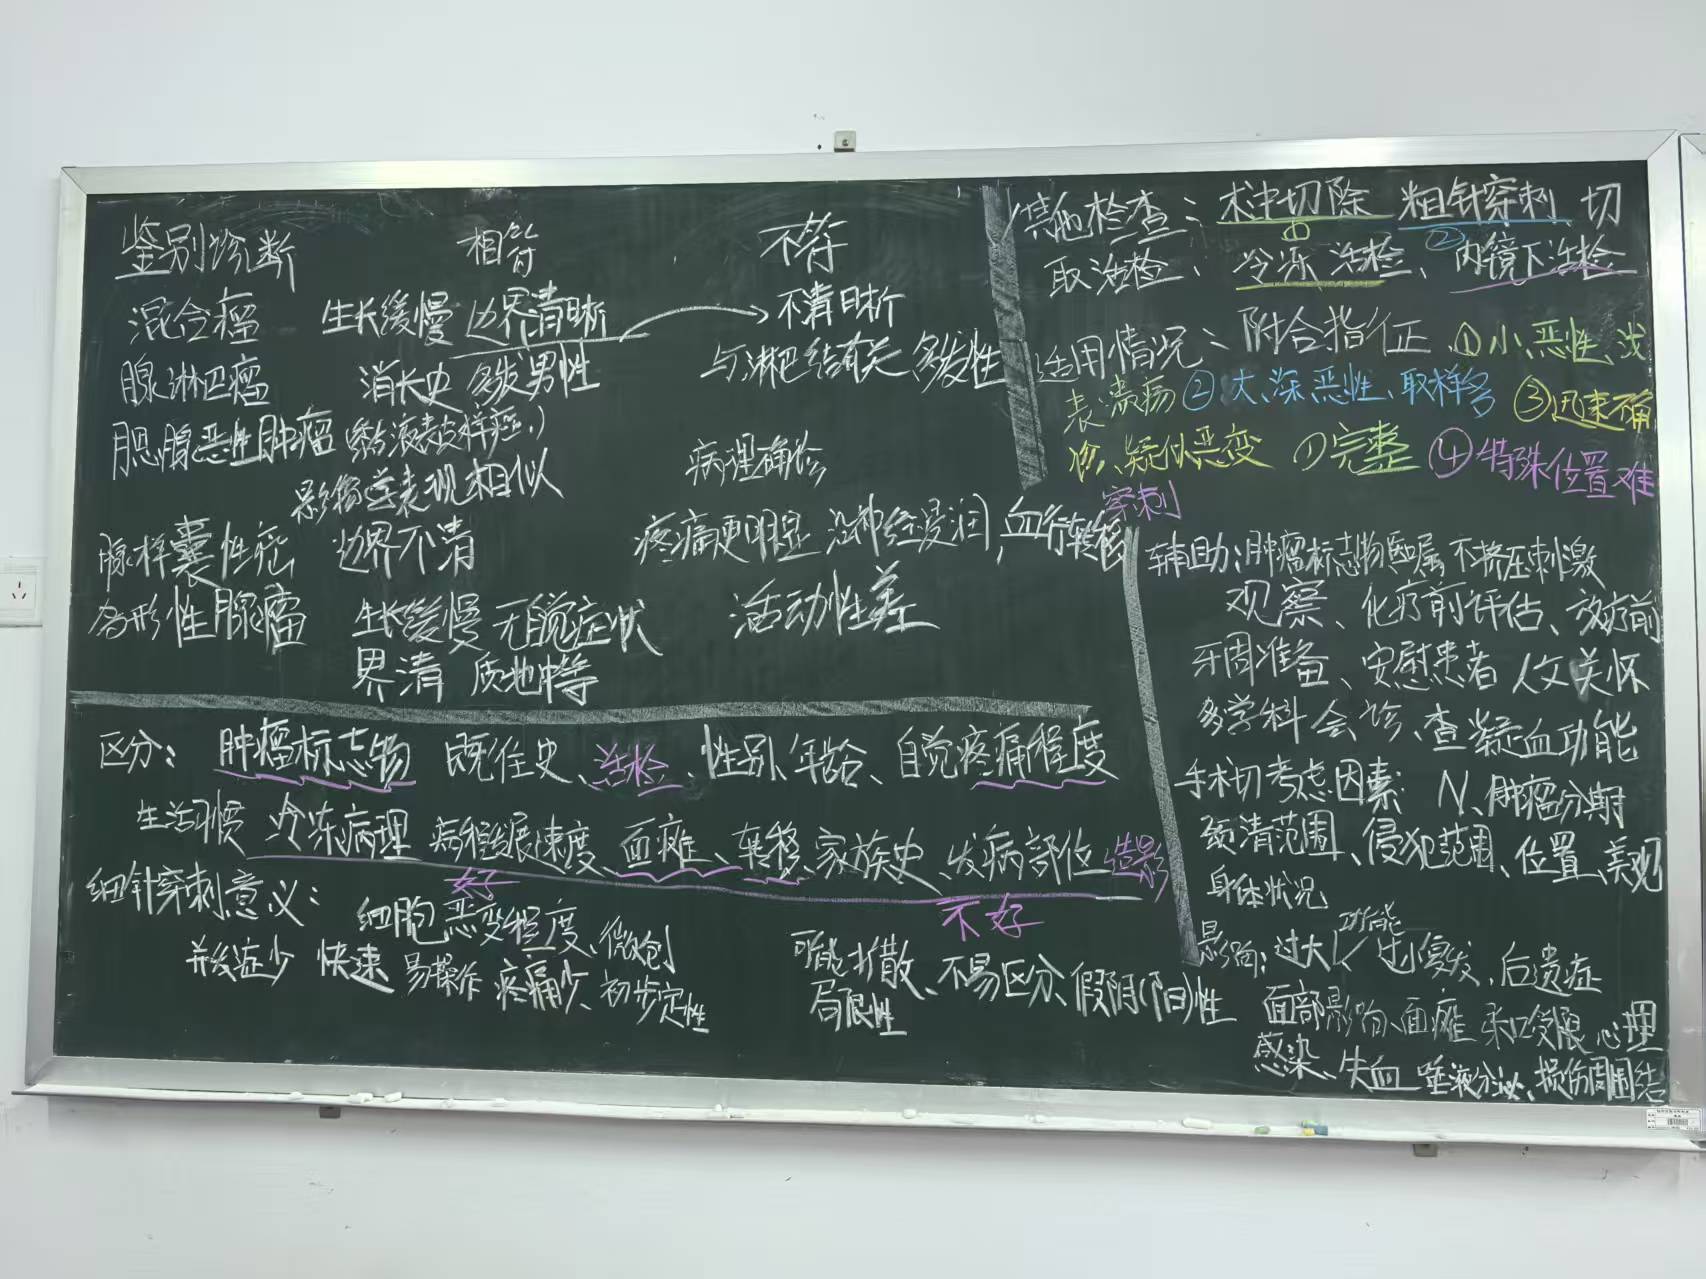 鉴别诊断 相符 不符
混合瘤 生长缓慢 边界清晰 不清晰
腺淋巴瘤 消长史 多发男性 与淋巴结有关、多发性
腮腺恶性肿瘤 (黏液表皮样癌)
影像学表现相似 病理确诊
腺样囊性癌 边界不清 疼痛更明显 没神经浸润,血行转移
多形性腺瘤 生长缓慢 无自觉症状 活动性差
界清 质地中等
区分: 肿瘤标志物 既往史、活检、性别、年龄、自觉疼痛程度
生活习惯 冷冻病理 病程发展速度、面瘫、转移、家族史、发病部位 造影
细针穿刺意义: 好 不好
细胞恶变程度、微创
并发症少 快速 易操作 疼痛少、初步定性
可能扩散、不易区分、假阴(阳)性
局限性
其他检查: 术中切除 粗针穿刺 切
① ②
取活检、冷冻活检、内镜下活检
适用情况: 附合指征 ①小、恶性、浅
表溃疡 ②大、深、恶性、取样多 ③迅速确
诊、疑似恶变 ①完整 ④特殊位置难
穿刺
辅助:肿瘤标志物 医嘱 不挤压刺激
观察、化疗前评估、放疗前
牙周准备、安慰患者 人文关怀
多学科会诊、查凝血功能
手术切考虑因素: N、肿瘤分期
颈清范围、侵犯范围、位置、美观
身体状况
影响:过大 功能 过小复发,后遗症
面部影响、面瘫 张口受限 心理
感染、失血 唾液分泌、损伤周围结